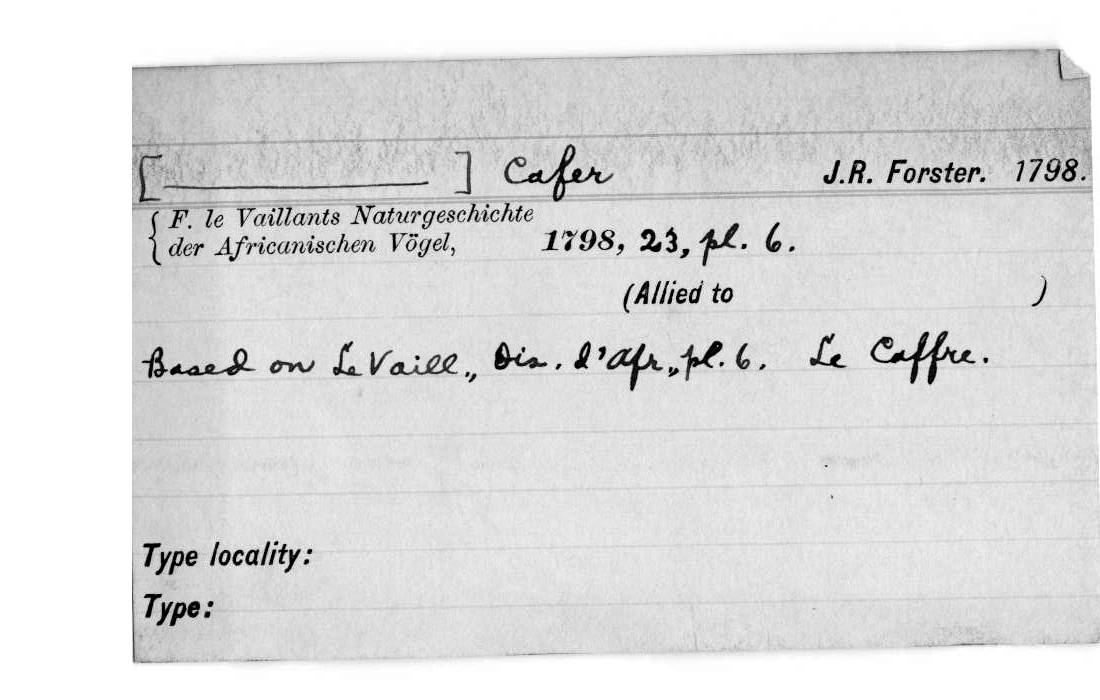 [ ] Cafer J.R. Forster. 1798.
{ F. le Vaillants Naturgeschichte
der Africanischen Vögel, 1798, 23, pl. 6.
(Allied to )
Based on Le Vaill., Ois. d'Afr., pl. 6. Le Caffre.
Type locality:
Type: